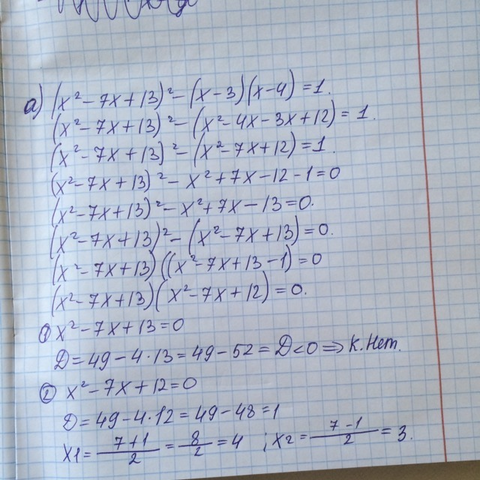 а) (x² - 7x + 13)² - (x - 3)(x - 4) = 1.
(x² - 7x + 13)² - (x² - 4x - 3x + 12) = 1.
(x² - 7x + 13)² - (x² - 7x + 12) = 1.
(x² - 7x + 13)² - x² + 7x - 12 - 1 = 0
(x² - 7x + 13)² - x² + 7x - 13 = 0.
(x² - 7x + 13)² - (x² - 7x + 13) = 0.
(x² - 7x + 13)((x² - 7x + 13 - 1) = 0
(x² - 7x + 13)(x² - 7x + 12) = 0.
① x² - 7x + 13 = 0
D = 49 - 4·13 = 49 - 52 = D < 0 ⇒ К.Нет.
② x² - 7x + 12 = 0
D = 49 - 4·12 = 49 - 48 = 1
x1 = (7+1)/2 = 8/2 = 4 ; x2 = (7-1)/2 = 3.